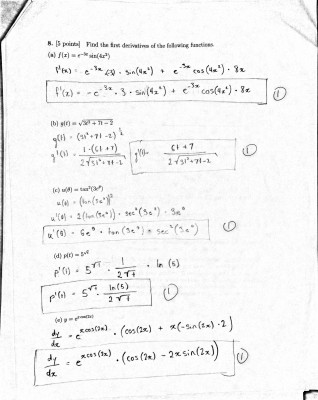 8. [5 points] Find the first derivatives of the following functions.
(a) f(x) = e^{-3x} sin(4x²)
f'(x) = e^{-3x} (-3) · sin(4x²) + e^{-3x} cos(4x²) · 8x
f'(x) = -e^{-3x} · 3 · sin(4x²) + e^{-3x} cos(4x²) · 8x
①
(b) g(t) = √(3t² + 7t - 2)
g(t) = (3t² + 7t - 2)^{½}
g'(t) = 1·(6t + 7) / 2√(3t² + 7t - 2)
g'(t) = 6t + 7 / 2√(3t² + 7t - 2)
①
(c) u(θ) = tan²(3e^θ)
u(θ) = (tan(3e^θ))²
u'(θ) = 2(tan(3e^θ)) · sec²(3e^θ) · 3e^θ
u'(θ) = 6e^θ · tan(3e^θ) · sec²(3e^θ)
①
(d) p(t) = 5^{√t}
p'(t) = 5^{√t} · 1 / 2√t · ln(5)
p'(t) = 5^{√t} · ln(5) / 2√t
①
(e) y = e^{x cos(2x)}
dy/dx = e^{x cos(2x)} · (cos(2x) + x(-sin(2x) · 2)
dy/dx = e^{x cos(2x)} · (cos(2x) - 2x sin(2x))
①